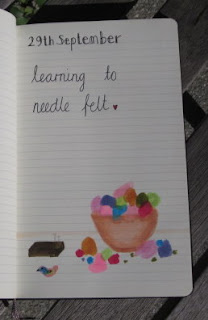 29th September
learning to
needle felt ♥